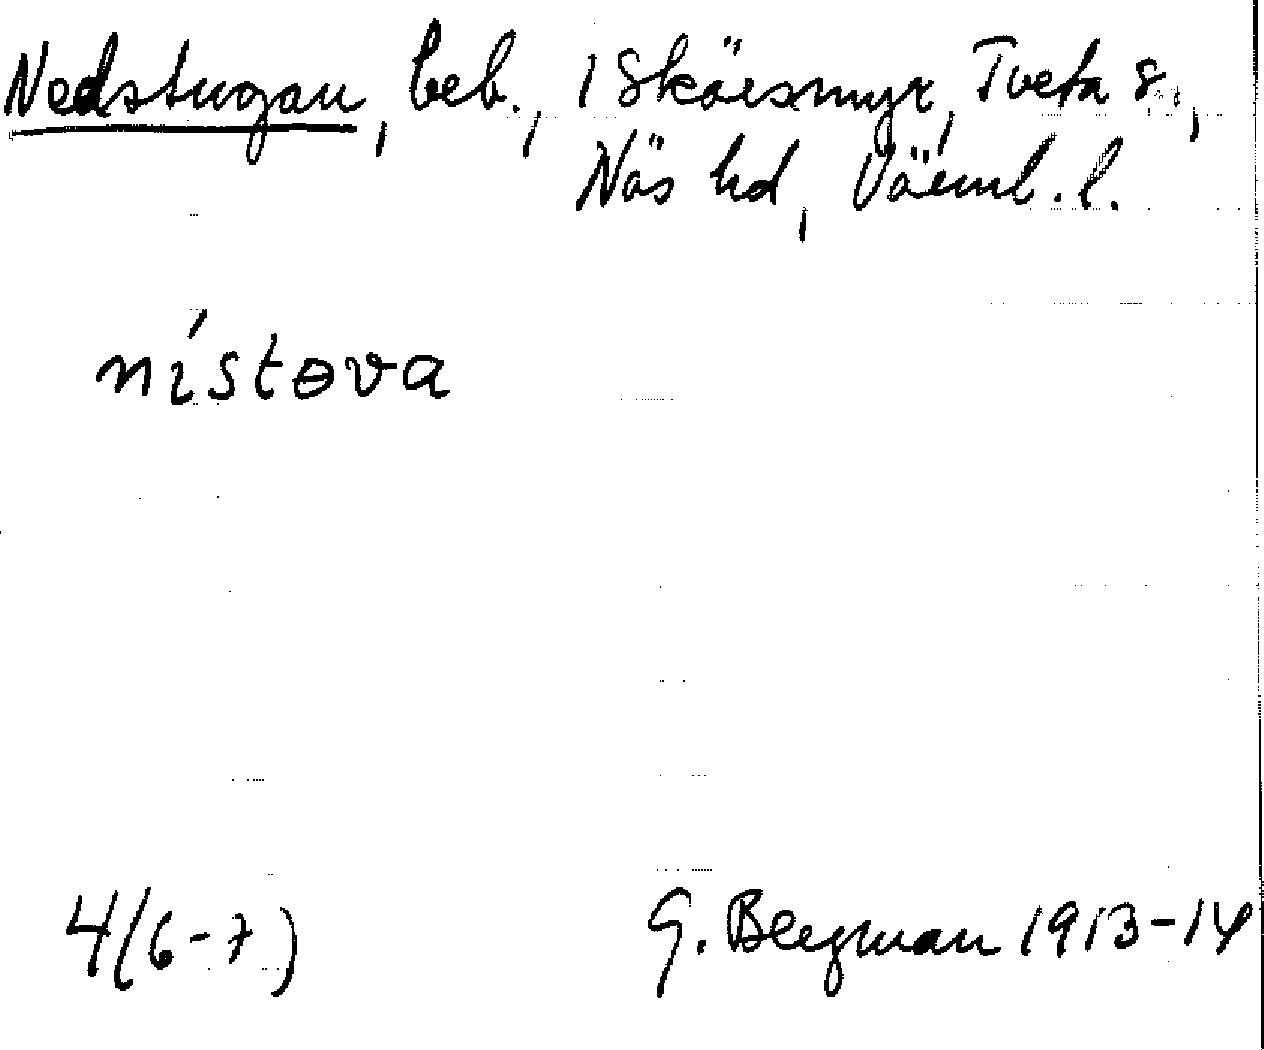 Nedstugan, beb., 1 Skärsmyr, Tveta s.,
Näs hd, Värml. l.
nístɵva
4(6-7)
G. Bergman 1913-14